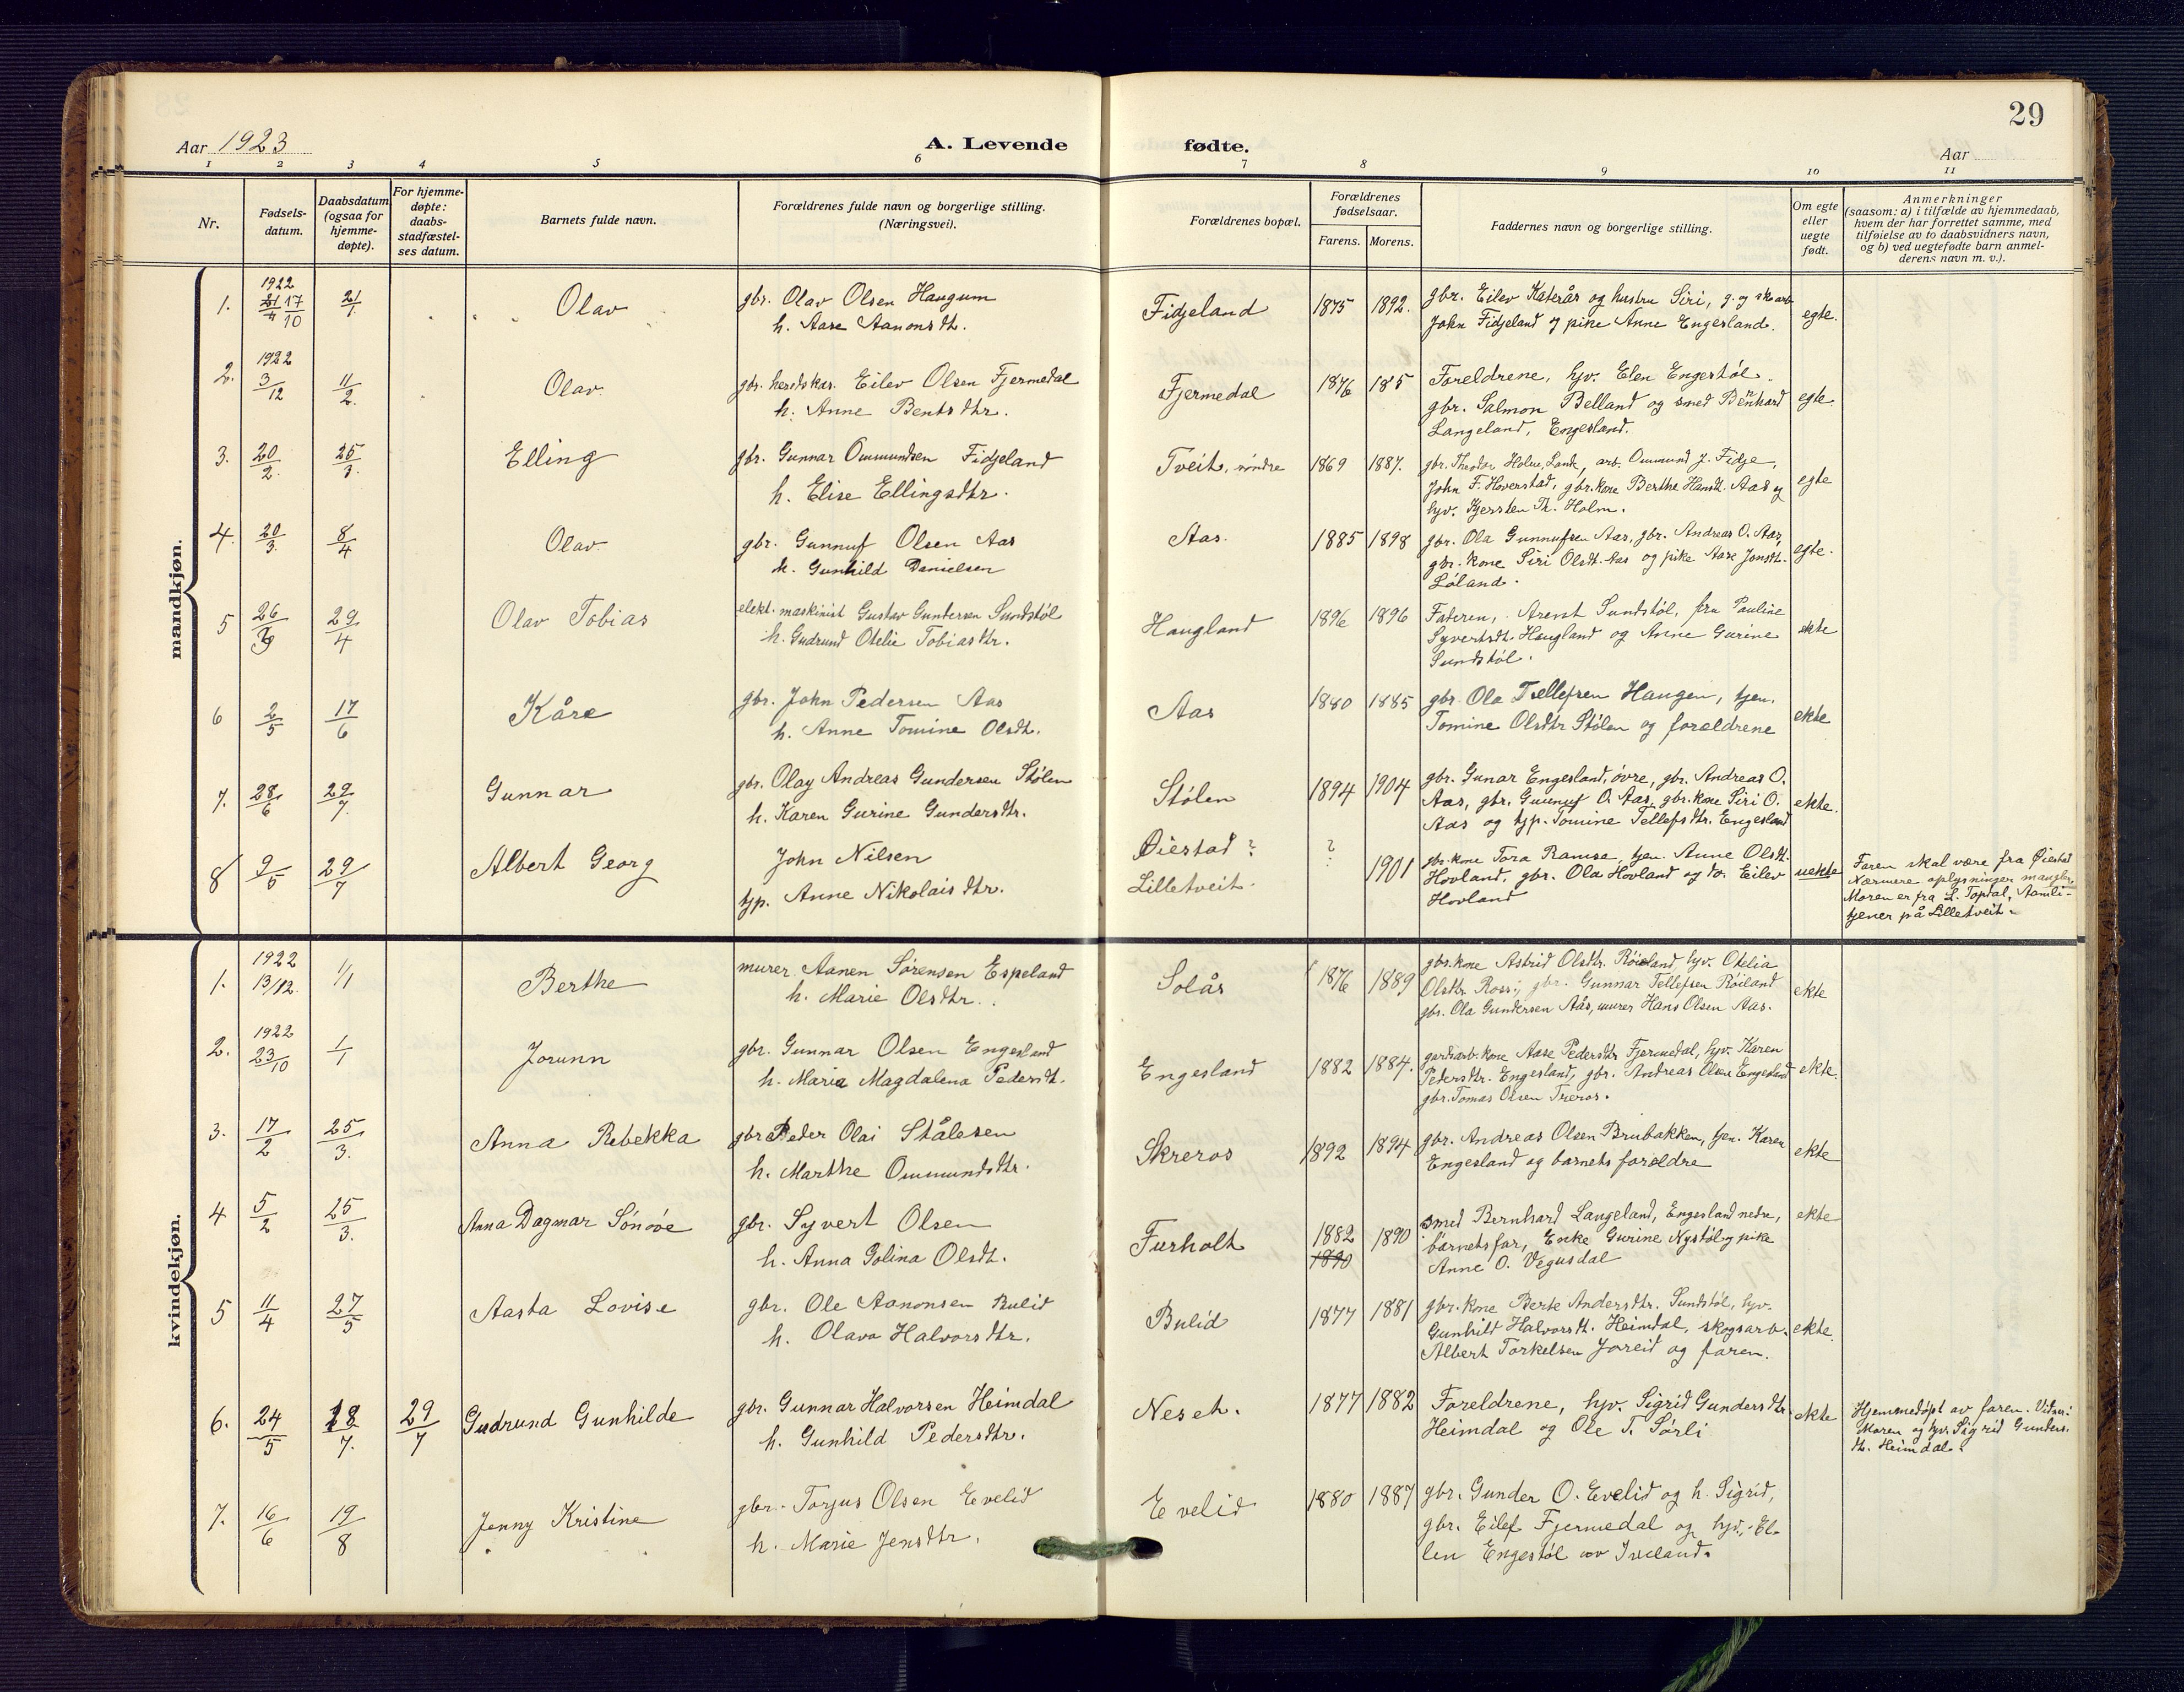 29
Aar 1923
A. Levende fødte.
Aar
1 2 3 4 5 6 7 8 9 10 11
Nr.
Fødsels-
datum.
Daabsdatum
(ogsaa for
hjemme-
døpte).
For hjemme-
døpte:
daabs-
stadfæstel-
ses datum.
Barnets fulde navn.
Forældrenes fulde navn og borgerlige stilling.
(Næringsvei).
Forældrenes bopæl.
Forældrenes
fødselsaar.
Farens. Morens.
Faddernes navn og borgerlige stilling.
Om egte
eller
uegte
født.
Anmerkninger
(saasom: a) i tilfælde av hjemmedaab,
hvem der har forrettet samme, med
tilføielse av to daabsvidners navn,
og b) ved uegtefødte barn anmel-
derens navn m. v.).
mandkjøn.
1. 1922 17/10 21/1 Olav
gbr. Olav Olsen Haugum
h. Aase Aanonsdt.
Fidjeland 1875 1892.
gbr. Eilev Katerås og hustru Siri, g. og skarb
John Fidjeland og pike Anne Engesland.
egte.
2. 1922 3/12 11/2. Olav.
gbr. herredskas. Eilev Olsen Fjermedal
h. Anne Bentsdtr.
Fjermedal 1876 185
Foreldrene, hjv. Elen Engestøl.
gbr. Salmon Belland og smed Bernhard
Langeland, Engesland.
egte.
3. 20/2. 25/3. Elling
gbr. Gunnar Ommundsen Fidjeland
h. Elise Ellingsdtr.
Tveit, nøndre 1869 1887.
gbr. Theodor Holne, Lande, arb. Ommund J. Fidje,
John F. Hoverstad, gbr.kone Berthe Hansdt. Aas og
hjv. Kjersten Th. Holm.
egte
4. 20/3. 8/4 Olav.
gbr. Gunnuf Olsen Aas
h. Gunhild Danielsen
Aas. 1885 1898
gbr. Ola Gunnufsen Aas, gbr. Andreas O. Aas,
gbr. kone Siri Olsdt. Aas og pike Aase Jonsdt.
Løland.
egte.
5 26/3 29/4 Olav Tobias
elekt. maskinist Gustav Guntersen Sundstøl
h. Gudrund Otelie Tobiasdtr.
Haugland 1896 1896
Faderen, Arent Sundstøl, fru Pauline
Syvertsdt. Haugland og Anne Gurine
Sundstøl.
ekte
6 2/5 17/6 Kåre
gbr. John Pedersen Aas
h. Anne Tomine Olsdt.
Aas 1880 1885
gbr. Ola Tellefsen Haugen, tjen.
Tomine Olsdtr Stølen og foreldrene
ekte
7. 28/6 29/7. Gunnar
gbr. Olav Andreas Gundersen Stølen
h. Karen Gurine Gundersdtr.
Stølen 1894 1904
gbr. Gunar Engesland, övre, gbr. Andreas O.
Aas, gbr. Gunnuf O. Aas, gbr.kone Siri O.
Aas og tjp. Tomine Tellefsdtr. Engesland
ekte.
8 9/5 29/7 Albert Georg
John Nilsen
tjp. Anne Nikolaisdtr.
Øiestad ? ?
Lilletveit. 1901
gbr. kone Tora Ramse, tjen. Anne Olsdt.
Hovland, gbr. Ola Hovland og do. Eilev
Hovland
uekte
Faren skal være fra Øiestad
Nærmere oplysninger mangler,
Moren er fra L. Topdal, Aamli-
tjener på Lilletveit.
kvindekjøn.
1. 1922 13/12. 1/1 Berthe
murer. Aanen Sørensen Espeland
h. Marie Olsdtr.
Solås 1876 1889
gbr.kone Astrid Olsdtr. Røieland, hjv. Otelia
Olsdtr Ross; gbr. Gunnar Tellefsen Røiland
gbr. Ola Gundersen Aås, murer Hans Olsen Aas.
ekte
2. 1922 23/10 1/1 Jorunn
gbr. Gunnar Olsen Engesland
h. Maria Magdalena Pedersdt.
Engesland 1882 1884.
gardsarb. kone Aase Pedersdtr Fjermedal, hjv. Karen
Pedersdtr. Engesland, gbr. Andreas Olsen Engesland
gbr. Tomas Olsen Treros.
ekte.
3. 17/2 25/3. Anna Rebekka
gbr Peder Olai Stålesen
h. Marthe Ommundsdtr.
Skreros 1892 1894
gbr. Andreas Olsen Brubakken, tjen. Karen
Engesland og barnets foreldre
ekte
4 5/2 25/3. Anna Dagmar Sønøve
gbr. Syvert Olsen
h. Anna Golina Olsdt.
Furholt 1882 1890
1890
smed Bernhard Langeland, Engesland nedre,
barnets far, Enke Gurine Nystøl og pike
Anne O. Vegusdal
ekte
5 11/4 27/5 Aasta Lovise
gbr. Ole Aanonsen Bulid
h. Olava Halvorsdtr.
Bulid 1877 1881
gbr. kone Berte Andersdtr. Sundstøl, hjv.
Gunhild Halvorsdt. Heimdal, skogsarb.
Albert Torkelsen Joreid og faren.
ekte.
6. 24/5 18/7. 29/7 Gudrund Gunhilde
gbr. Gunnar Halvorsen Heimdal
h. Gunhild Pedersdtr.
Neset. 1877 1882
Foreldrene, hjv. Sigrid Gundersdtr
Heimdal og Ole T. Sørli
ekte
Hjemmedøpt av faren. Vidner:
Moren og hjv. Sigrid Gunders.
dt. Heimdal.
7. 16/6 19/8 Jenny Kristine
gbr. Torjus Olsen Evelid
h. Marie Jensdtr.
Evelid 1880 1887
gbr. Gunder O. Evelid og h. Sigrid,
gbr. Eilef Fjermedal og hjv. El-
len Engestøl av Iveland.